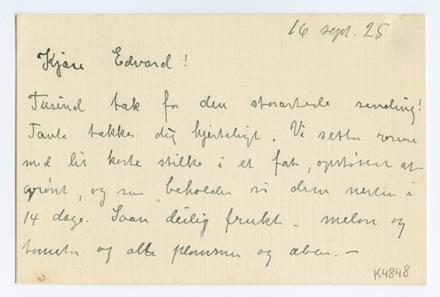 16 sept. 25
Kjære Edvard!
Tusind tak for den storartede sending!
Tante takker dig hjerteligt. Vi setter rosene
med lit korte stilke i et fat, opstøttet af
grønt, og saa beholder vi dem nesten i
14 dage. Saan deilig frukt – melon og
tomater og alle plommer og æbler. –
K4848